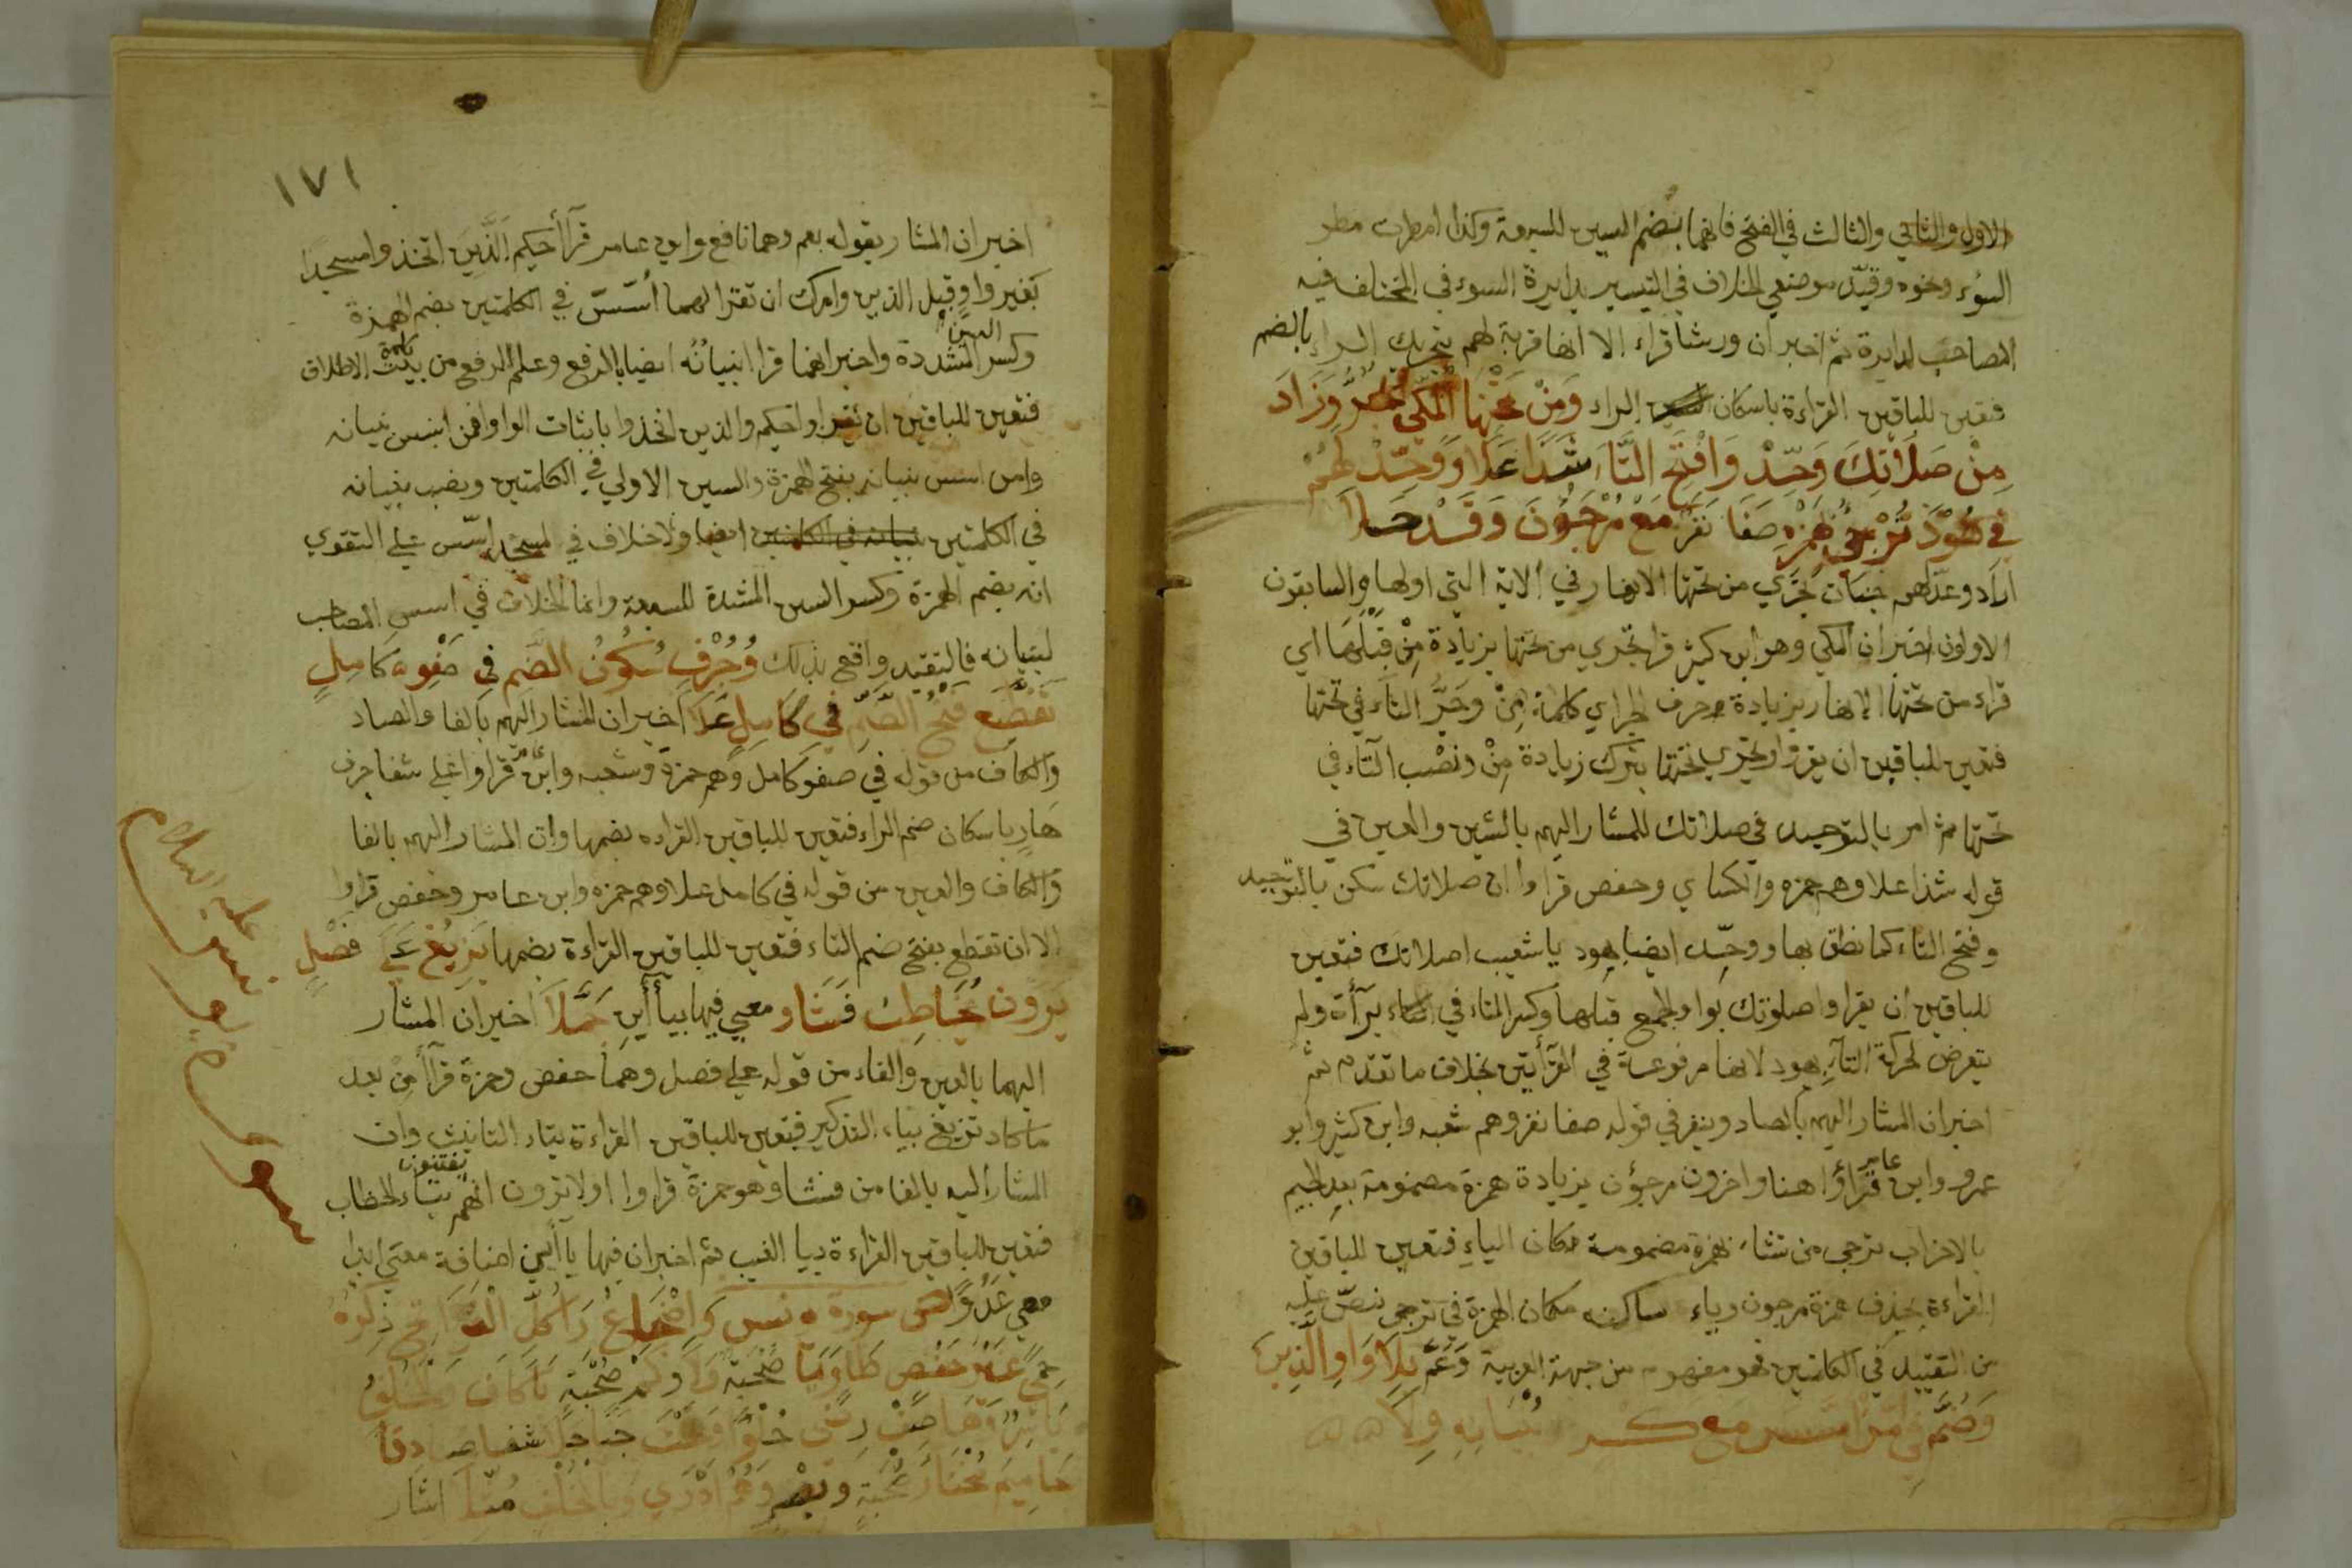 الاول والثاني والثالث في الفتح فانهما بضم السين للسبعة وكذا امطرت مطر
السوء ونحوه وقيّد موضعي الخلاف في التيسير بدايرة السوء في المختلف فيه
المصاحب لدايرة ثم اخبر ان ورشا قراء الا انها قربة لهم بتحريك الراء بالضم
فتعين للباقين القراءة باسكان الراء وَمَنْ تَحْتِهَا الْمَكِّي يَجُرُّ وَزَادَ
مِنْ صَلَاتِكَ وَحِّدْ وَافْتَحِ التَّا شَذًا عَلَا وَوَحِّدْ لَهُمْ
فِي هُوْدَ تُرْجِئُ هَمْزُهُ صَفَا نَفَرٍ مَعَ مُرْجَؤُنَ وَقَدْ حَلَا
اراد وعدلهم جنات تجري من تحتها الانهار في الاية التي اولها والسابقون
الاولون اخبر ان المكي وهو ابن كثير قرا تجري من تحتها بزيادة مِنْ قَبْلَهَا اي
قراء من تحتها الانهار بزيادة حرف الجر اي كلمة مِنْ وجَرِّ التاء في تحتها
فتعين للباقين ان يقرؤا تجري تحتها بترك زيادة مِنْ ونصْب التاء في
تحتها ثم امر بالتوحيد في صلاتك للمشار اليهم بالشين والعين في
قوله شذا علا وهم حمزه والكساي وحفص قراوا ان صلاتك سكن بالتوحيد
وفتح التاء كما نطق بها ووحّد ايضا بهود ياشعيب اصلاتك فتعين
للباقين ان يقراوا صلوتك بواو الجمع قبلها وكسر التاء في براءة ولم
يتعرض لحركة التاء بهود لانها مرفوعة في القرأتين بخلاف ما تقدم ثم
اخبر ان المشار اليهم بالصاد وبنفر في قوله صفا نفر وهم شعبه وابن كثير وابو
عمرو وابن عامر قراؤا هنا واخرون مرجؤن بزيادة همزة مضمومة بعد الجيم
بالاحزاب ترجي من تشاء بهمزة مضمومة مكان الياء فتعين للباقين
القراءة بحذف همزة مرجون وياء ساكنه مكان الهمزة في ترجي نصّ عليه
من التقييد في الكلمتين فهو مفهوم من جهة العربية وَعَمَّ بِلَا وَاوِ الَّذِينَ
وَضُمَّ فِي مَنْ اَسَّسَ مَعَ كَسْرٍ وَبُنْيَانُهُ وِلَا
١٧١
اخبر ان المشار بقوله بعم وهما نافع وابن عامر قرأ احكيم الَّذِينَ اتخذوا مسجدا
بغير واو قبل الذين وامرك ان تقرا لهما اُسِّسَ في الكلمتين بضم الهمزة
وكسر السين المشددة واخبر انهما قرا ابنيانُهُ ايضا بالرفع وعلم الرفع من الاطلاق
فتعين للباقين ان يقراوا حكيم والذين اتخذوا باثبات الواو افمن اسس بنيانه
وامن اسس بنيانه بفتح الهمزة والسين الاولي في الكلمتين ونصب بنيانه
في الكلمتين بنيانه في الكلمتين ايضا ولاخلاف في لمسجد اسّس علي التقوي
انه بضم الهمزة وكسر السين المشددة للسبعة وانما الخلاف في اسس المصاحب
لبنيانه فالتقيد واقع بذلك وَجُرْفٍ سُكُونُ الضَّمِ فِي صَفْوِ كَامِلٍ
تَقَطَّعَ فَتْحُ الضَّمِّ فِي كَامِلٍ عَلَا اخبر ان المشار اليهم بالفا والصاد
والكاف من قوله في صفو كامل وهم حمزة وشعبه وابن قراوا علي شفا جرف
هَارٍ باسكان ضم الراء فتعين للباقين القراءه بضمها وان المشار اليهم بالفا
والكاف والعين من قوله في كامل علا وهم حمزه وابن عامر وحفص قراوا
الا ان تقطع بفتح ضم التاء فتعين للباقين القراءة بضمها يَزِيغُ عَلَى فَصْلٍ
يَرَوْنَ مُخَاطِبٌ فَشَا ومعي فيها بياأين حُمِّلَا اخبر ان المشار
اليهما بالعين والفاء من قوله علي فصل وهما حفص وحمزة قرأ من بعد
ما كاد تزيغ بياء التذكير فتعين للباقين القراءة بتاء التانيث وان
المشار اليه بالفا من فشا وهو حمزة قراوا اولا ترون انهم يفتنون بتاء الخطاب
فتعين للباقين القراءة بيا الغيب ثم اخبر ان فيها ياأين اضافة معي ابدا
معي عَدُوًّا سورة يونس وَاِضْجَاعُ رَا كُلِّ الْفَوَاتِحِ ذِكْرُهُ
حِمًى غَيْرَ حَفْصٍ طَاوَيَا صُحْبَةٌ وَلَا وَكَمْ صُحْبَةٍ يَا كَافَ وَالْخُلْفُ
يَاسِرٌ وَهَا صِفْ رِضًى حُلْوًا وَتَحْتَ جَنًا حَلَا شفا صادقا
حَامِيمَ مُخْتَارُ صُحْبَةٍ وبصر وَهُمْ اَدْرَى وَبِالْخُلْفِ مُثِّلَا اشار
سورة يونس عليه السلام